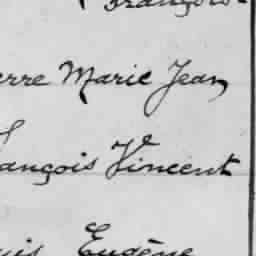 François
erre Marie Jean
ançois Vincent
uis Eugène